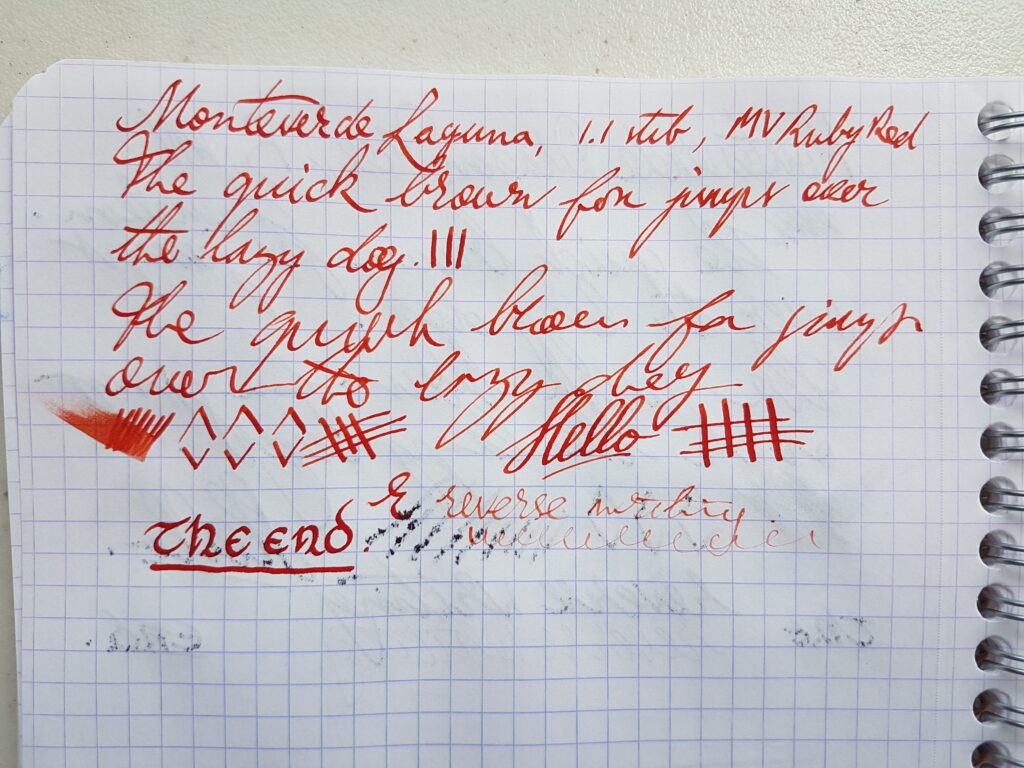 Monteverde Laguna, 1.1 stub, MV Ruby Red
The quick brown fox jumps over
the lazy dog. |||
The quick brown fox jumps
over the lazy dog
Hello
& reverse writing
The end.